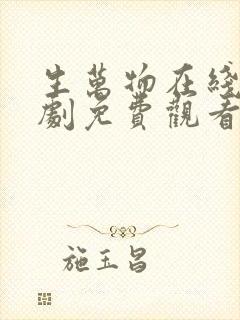 生萬物在綫
劇免費觀看
施玉昌